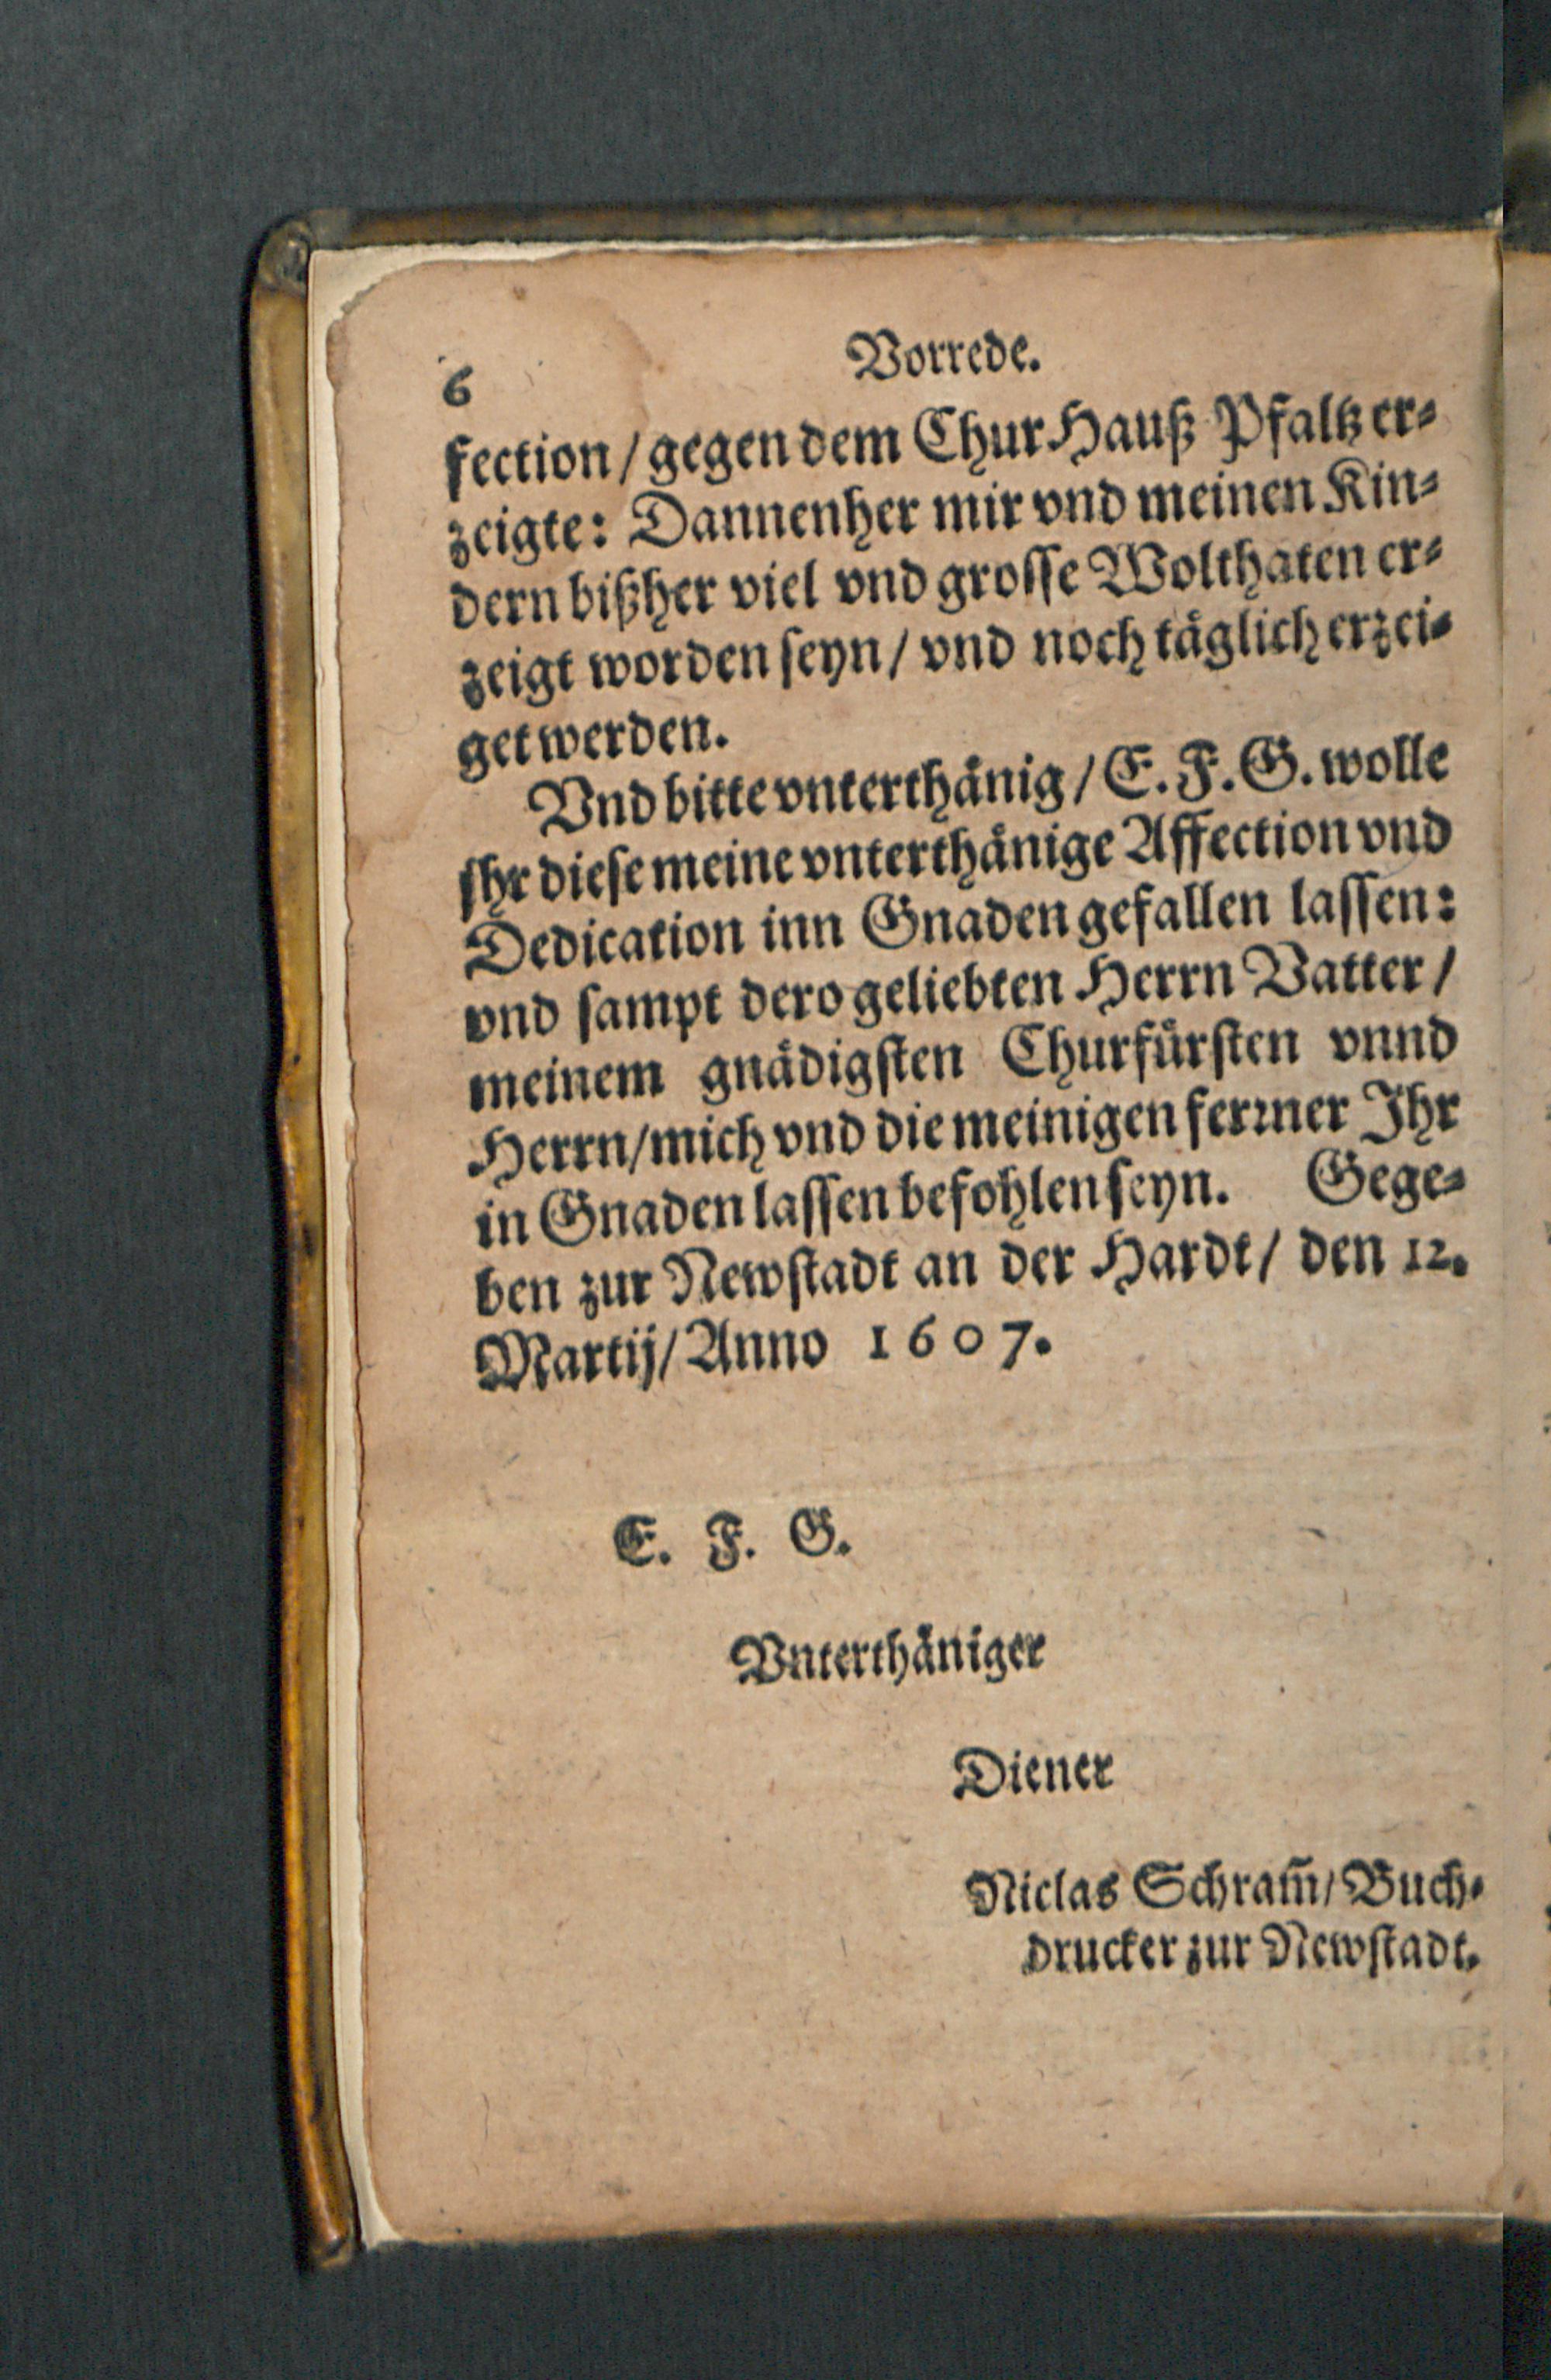 6 Vorrede.
fection / gegen dem Chur Hauß Pfaltz er⸗
zeigte: Dannenher mir vnd meinen Kin⸗
dern bißher viel vnd grosse Wolthaten er⸗
zeigt worden seyn / vnd noch täglich erzei⸗
get werden.
Vnd bitte vnterthänig / E. F. G. wolle
jhr diese meine vnterthänige Affection vnd
Dedication inn Gnaden gefallen lassen:
vnd sampt dero geliebten Herrn Vatter /
meinem gnädigsten Churfürsten vnnd
Herrn / mich vnd die meinigen ferrner Ihr
in Gnaden lassen befohlen seyn. Gege⸗
ben zur Newstadt an der Hardt / den 12.
Martij / Anno 1607.
E. F. G.
Vnterthäniger
Diener
Niclas Schram̃ / Buch⸗
drucker zur Newstadt.